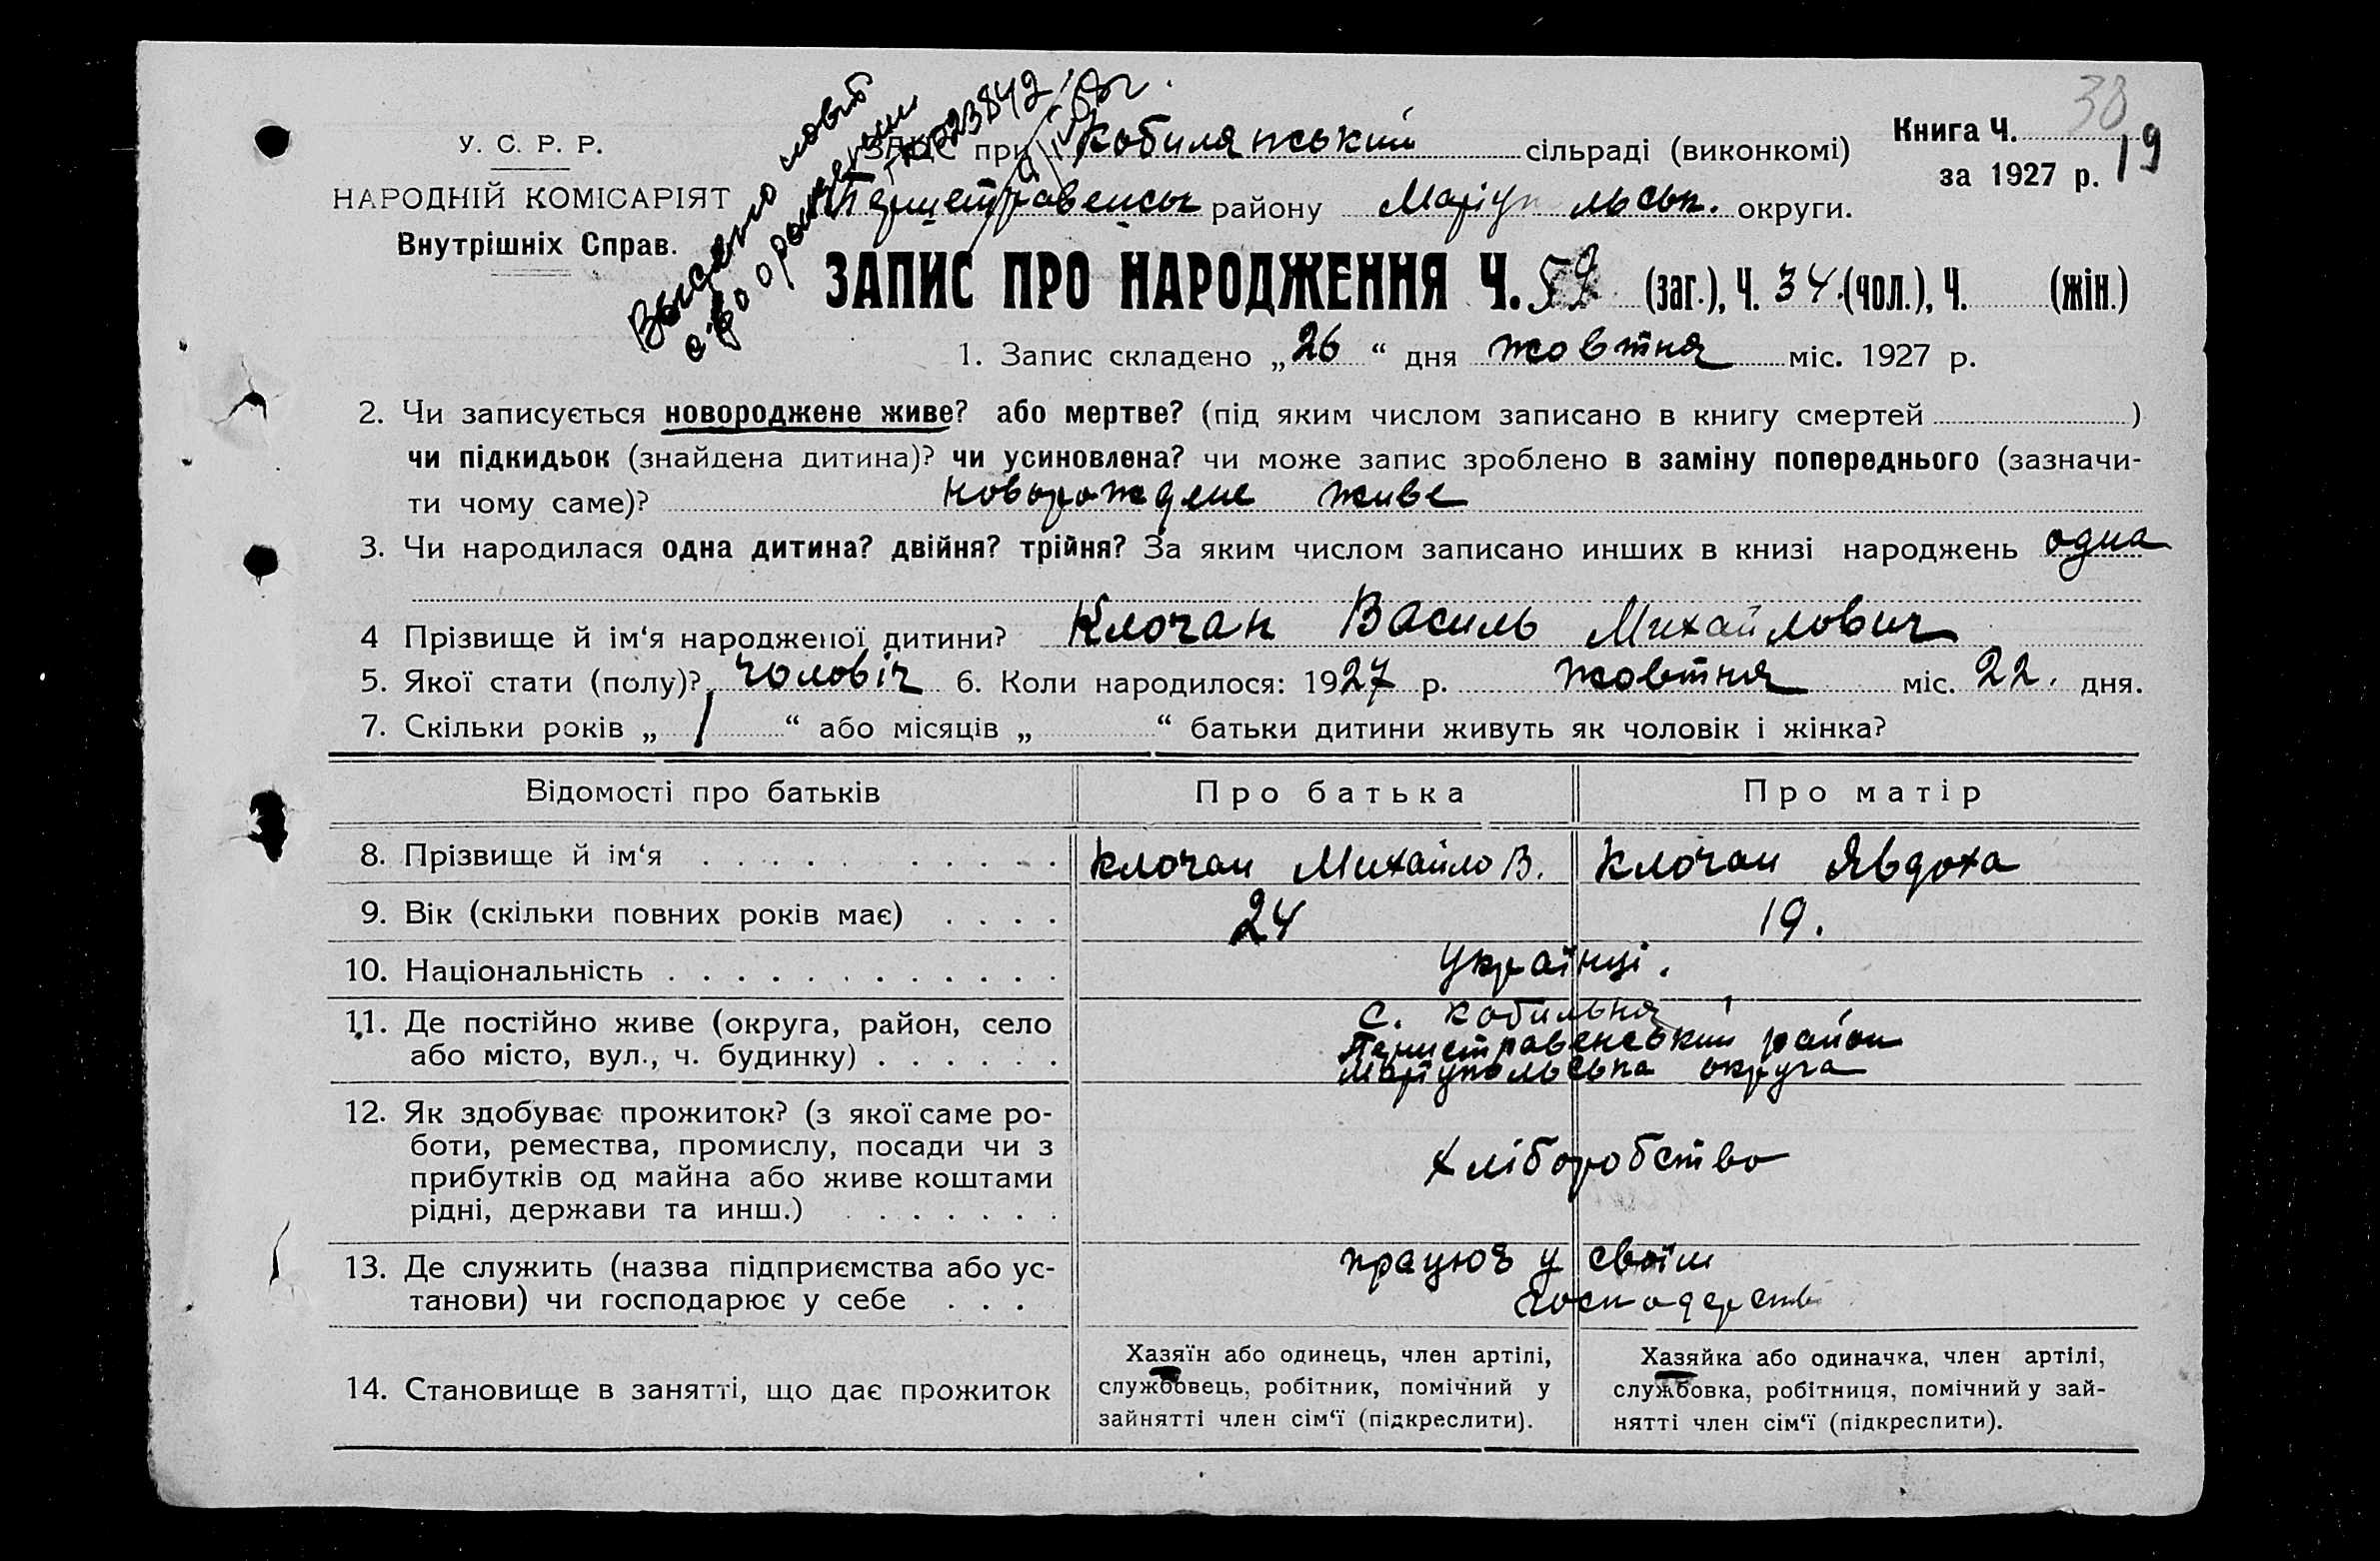 38
19
Выдано новое
с-во о рождении
23842
У. С. Р. Р.
НАРОДНІЙ КОМІСАРІЯТ
Внутрішніх Справ.
ЗАЦС при Кобилянський сільраді (виконкомі)
Першетравенськ району Маріупільськ. округи.
Книга Ч.
за 1927 р.
ЗАПИС ПРО НАРОДЖЕННЯ Ч. 59 (заг.), Ч. 34 (чол.), Ч. (жін.)
1. Запис складено „26“ дня жовтня міс. 1927 р.
2. Чи записується новороджене живе? або мертве? (під яким числом записано в книгу смертей )
чи підкидьок (знайдена дитина)? чи усиновлена? чи може запис зроблено в заміну попереднього (зазначи-
ти чому саме)? новорождене живе
3. Чи народилася одна дитина? двійня? трійня? За яким числом записано инших в книзі народжень одна
4 Прізвище й ім‘я народженої дитини? Клочан Василь Михайлович
5. Якої стати (полу)? чоловіч 6. Коли народилося: 1927 р. жовтня міс. 22. дня.
7. Скільки років „ 1 “ або місяців „ “ батьки дитини живуть як чоловік і жінка?
Відомості про батьків Про батька Про матір
8. Прізвище й ім‘я Клочан Михайло В. Клочан Явдоха
9. Вік (скільки повних років має) 24 19.
10. Національність Українці.
11. Де постійно живе (округа, район, село
або місто, вул., ч. будинку)
с. Кобильня
Першетравенський район
Маріупольська округа
12. Як здобуває прожиток? (з якої саме ро-
боти, ремества, промислу, посади чи з
прибутків од майна або живе коштами
рідні, держави та инш.)
хліборобство
13. Де служить (назва підприємства або ус-
танови) чи господарює у себе
працює у своїм
господарстві
14. Становище в занятті, що дає прожиток
Хазяїн або одинець, член артілі,
службовець, робітник, помічний у
зайнятті член сім‘ї (підкреслити).
Хазяйка або одиначка, член артілі,
службовка, робітниця, помічний у зай-
нятті член сім‘ї (підкреслити).